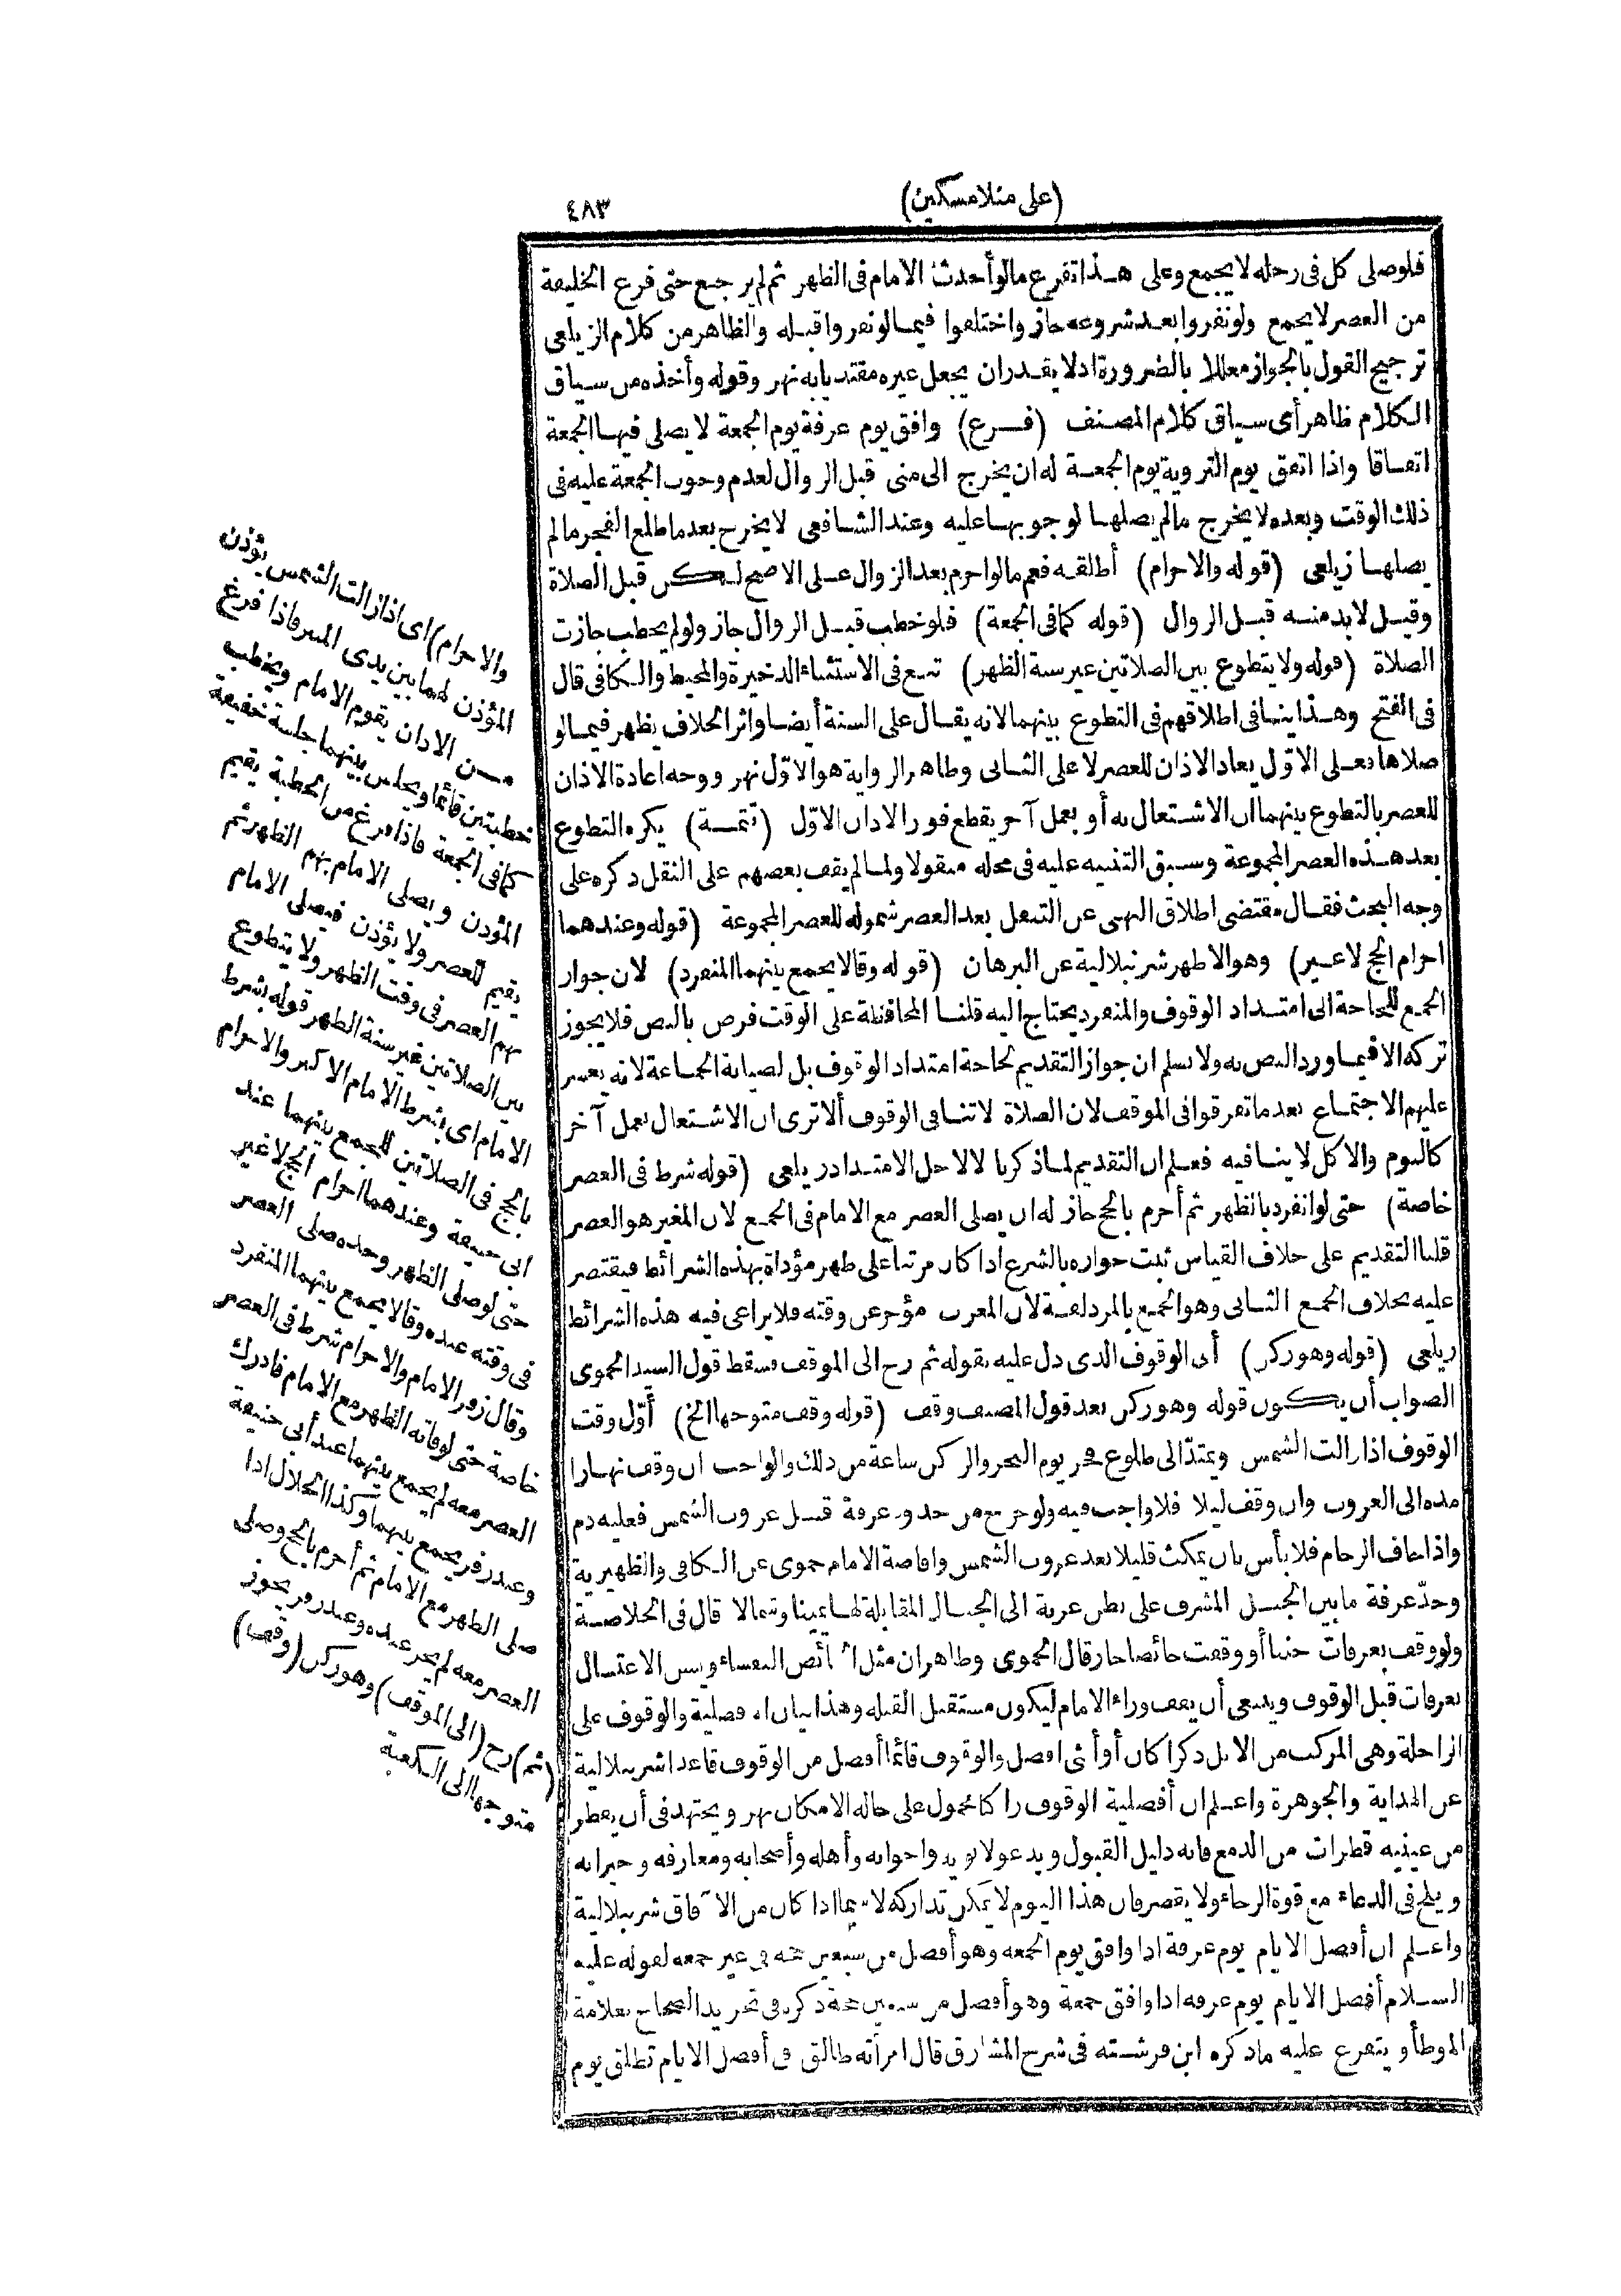 (على منلامسكين)
٤٨٣
فلوصلى كل فى رحله لا يجمع وعلى هذا تفرع مالوأحدث الامام فى الظهر ثم لم يرجع حتى فرغ الخليفة
من العصر لا يجمع ولونفروا بعد شروعه جاز واختلفوا فيما لونفروا قبله والظاهر من كلام الزيلعى
ترجيح القول بالجواز معللا بالضرورة اذ لا يقدر ان يجعل غيره مقتديا به نهر وقوله وأخذه من سياق
الكلام ظاهر أى سياق كلام المصنف (فرع) وافق يوم عرفة يوم الجمعة لا يصلى فيها الجمعة
اتفاقا واذا اتفق يوم التروية يوم الجمعة له ان يخرج الى منى قبل الزوال لعدم وجوب الجمعة عليه فى
ذلك الوقت وبعده لا يخرج مالم يصلها لوجوبها عليه وعند الشافعى لا يخرج بعد ماطلع الفجر مالم
يصلها زيلعى (قوله والاحرام) أطلقه فعم مالواحرم بعد الزوال على الاصح لكن قبل الصلاة
وقيل لابد منه قبل الزوال (قوله كمافى الجمعة) فلوخطب قبل الزوال جاز ولولم يخطب جازت
الصلاة (قوله ولا يتطوع بين الصلاتين غير سنة الظهر) تبع فى الاستثناء الذخيرة والمحيط والكافى قال
فى الفتح وهذا ينافى اطلاقهم فى التطوع بينهما لانه يقال على السنة أيضا واثر الخلاف يظهر فيمالو
صلاها فعلى الاوّل يعاد الاذان للعصر لا على الثانى وظاهر الرواية هو الاوّل نهر ووجه اعادة الاذان
للعصر بالتطوع بينهما ان الاشتغال به أو بعمل آخر يقطع فور الاذان الاوّل (تتمة) يكره التطوع
بعد هذه العصر المجموعة وسبق التنبيه عليه فى محله منقولا ولما لم يقف بعضهم على النقل ذكره على
وجه البحث فقال مقتضى اطلاق النهى عن التنفل بعد العصر شموله للعصر المجموعة (قوله وعندهما
احرام الحج لاغير) وهو الاظهر شرنبلالية عن البرهان (قوله وقالا يجمع بينهما المنفرد) لان جواز
الجمع للحاجة الى امتداد الوقوف والمنفرد يحتاج اليه قلنا المحافظة على الوقت فرض بالنص فلا يجوز
تركه الا فيما ورد النص به ولا نسلم ان جواز التقديم لحاجة امتداد الوقوف بل لصيانة الجماعة لانه يعسر
عليهم الاجتماع بعد ماتفرقوا فى الموقف لان الصلاة لاتنافى الوقوف ألا ترى ان الاشتغال بعمل آخر
كالنوم والاكل لا ينافيه فعلم ان التقديم لما ذكرنا لا لاجل الامتداد زيلعى (قوله شرط فى العصر
خاصة) حتى لوانفرد بالظهر ثم أحرم بالحج جاز له ان يصلى العصر مع الامام فى الجمع لان المغير هو العصر
قلنا التقديم على خلاف القياس ثبت جوازه بالشرع اذا كان مرتبا على ظهر مؤداة بهذه الشرائط فيقتصر
عليه بخلاف الجمع الثانى وهو الجمع بالمزدلفة لان المغرب مؤخر عن وقته فلا يراعى فيه هذه الشرائط
زيلعى (قوله وهوركن) أى الوقوف الذى دل عليه بقوله ثم رح الى الموقف فسقط قول السيد الحموى
الصواب أن يكون قوله وهوركن بعد قول المصنف وقف (قوله وقف متوجها الخ) أوّل وقت
الوقوف اذا زالت الشمس ويمتدّ الى طلوع فجر يوم النحر والركن ساعة من ذلك والواجب ان وقف نهارا
مده الى الغروب وان وقف ليلا فلا واجب فيه ولو خرج من حدود عرفة قبل غروب الشمس فعليه دم
واذا خاف الزحام فلا بأس بان يمكث قليلا بعد غروب الشمس وافاضة الامام حموى عن الكافى والظهيرية
وحدّ عرفة مابين الجبل المشرف على بطن عرنة الى الجبال المقابلة لها يمينا وشمالا قال فى الخلاصة
ولو وقف بعرفات جنبا أو وقفت حائضا جاز قال الحموى وظاهر ان مثل الحائض النفساء ويسن الاغتسال
بعرفات قبل الوقوف وينبغى أن يقف وراء الامام ليكون مستقبل القبلة وهذا بيان الافضلية والوقوف على
الراحلة وهى المركب من الابل ذكرا كان أو أنثى افضل والوقوف قائما أفضل من الوقوف قاعدا شرنبلالية
عن الهداية والجوهرة واعلم ان أفضلية الوقوف راكبا محمول على حالة الامكان نهر ويجتهد فى أن يقطر
من عينيه قطرات من الدمع فانه دليل القبول ويدعو لابويه واخوانه وأهله وأصحابه ومعارفه وجيرانه
ويلح فى الدعاء مع قوة الرجاء ولا يقصر فان هذا اليوم لا يمكن تداركه لاسيما اذا كان من الآفاق شرنبلالية
واعلم ان أفضل الايام يوم عرفة اذا وافق يوم الجمعة وهو أفضل من سبعين حجة فى غير جمعة لقوله عليه
السلام أفضل الايام يوم عرفة اذا وافق جمعة وهو أفضل من سبعين حجة ذكره فى تجريد الصحاح بعلامة
الموطأ ويتفرع عليه ماذكره ابن فرشته فى شرح المشارق قال امرأته طالق فى أفضل الايام تطلق يوم
والاحرام) اى اذا زالت الشمس يؤذن
المؤذن لهما بين يدى المنبر فاذا فرغ
من الاذان يقوم الامام ويخطب
خطبتين قائما ويجلس بينهما جلسة خفيفة
كمافى الجمعة فاذا فرغ من الخطبة يقيم
المؤذن ويصلى الامام بهم الظهر ثم
يقيم للعصر ولا يؤذن فيصلى الامام
بهم العصر فى وقت الظهر ولا يتطوع
بين الصلاتين غير سنة الظهر قوله بشرط
الامام اى بشرط الامام الاكبر والاحرام
بالحج فى الصلاتين للجمع بينهما عند
ابى حنيفة وعندهما احرام الحج لاغير
حتى لوصلى الظهر وحده صلى العصر
فى وقته عنده وقالا يجمع بينهما المنفرد
وقال زفر الامام والاحرام شرط فى العصر
خاصة حتى لوفاته الظهر مع الامام فادرك
العصر معه لم يجمع بينهما عند أبى حنيفة
وعند زفر يجمع بينهما وكذا الحلال اذا
صلى الظهر مع الامام ثم أحرم بالحج وصلى
العصر معه لم يجز عنده وعند زفر يجوز
(ثم) رح (الى الموقف) وهوركن (وقف)
متوجها الى الكعبة